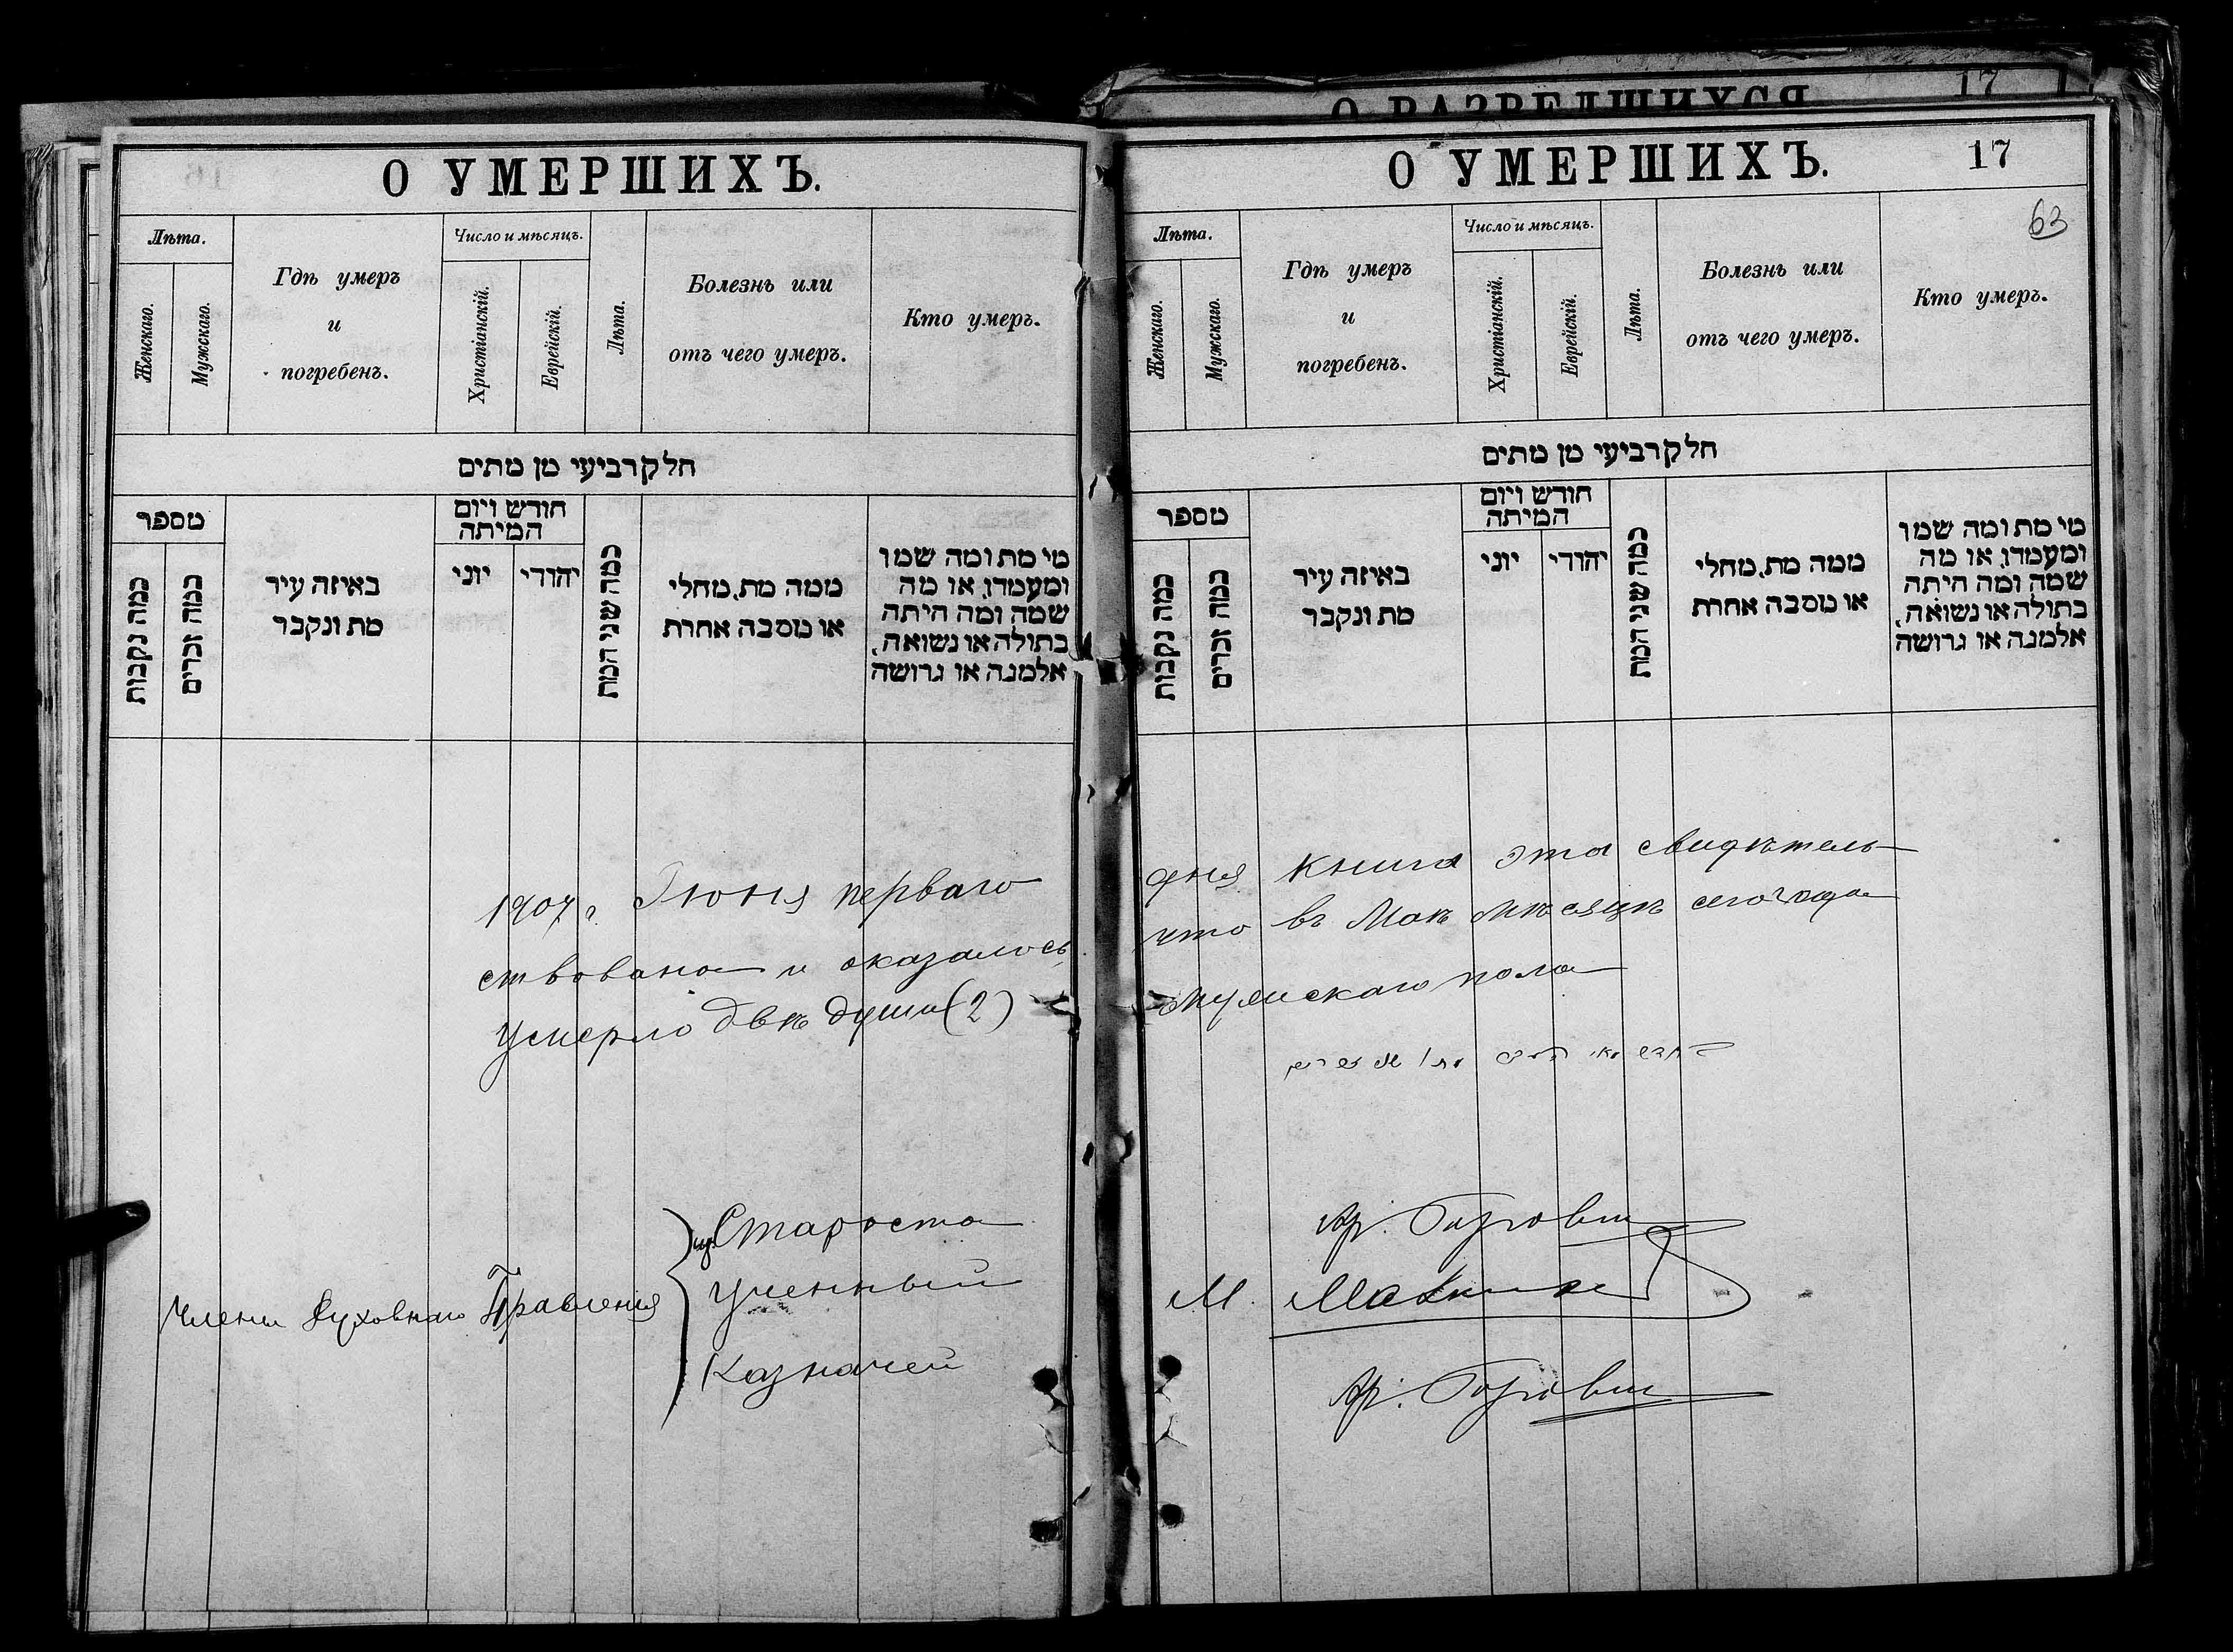 О РАЗВЕДШИХСЯ
17
О УМЕРШИХЪ.
Лѣта.
Женскаго.
Мужскаго.
Гдѣ умеръ
и
погребенъ.
Число и мѣсяцъ.
Христіанскій.
Еврейскій.
Лѣта.
Болезнь или
отъ чего умеръ.
Кто умеръ.
חלק רביעי מן מתים
מספר
כמה נקבות
כמה זכרים
באיזה עיר
מת ונקבר
חודש ויום
המיתה
יוני
יהודי
כמה שני המת
ממה מת, מחלי
או מסבה אחרת
מי מת ומה שמו
ומעמדו, או מה
שמה ומה היתה
בתולה או נשואה,
אלמנה או גרושה
О УМЕРШИХЪ.
17
63
Лѣта.
Женскаго.
Мужскаго.
Гдѣ умеръ
и
погребенъ.
Число и мѣсяцъ.
Христіанскій.
Еврейскій.
Лѣта.
Болезнь или
отъ чего умеръ.
Кто умеръ.
חלק רביעי מן מתים
מספר
כמה נקבות
כמה זכרים
באיזה עיר
מת ונקבר
חודש ויום
המיתה
יוני
יהודי
כמה שני המת
ממה מת, מחלי
או מסבה אחרת
מי מת ומה שמו
ומעמדו, או מה
שמה ומה היתה
בתולה או נשואה,
אלמנה או גרושה
1907 г. Іюня перваго дня книга эта свидѣтель-
ствована и оказалось, что въ Маѣ мѣсяцѣ сего года
умерло двѣ души (2) мужскаго пола
Члены Духовнаго Правленія
Староста
Ученный М.
Казначей